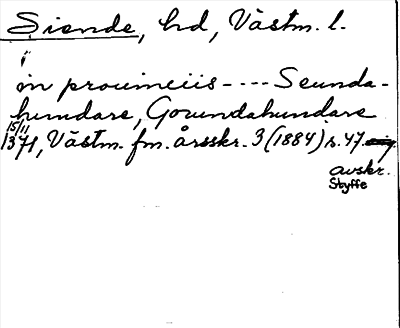 Siende, hd, Västm. l.
in prouinciis ---- Seunda-
hundare, Gorundahundare
15/11
1371, Västm. fm. årsskr. 3 (1884) s. 47.
avskr.
Styffe